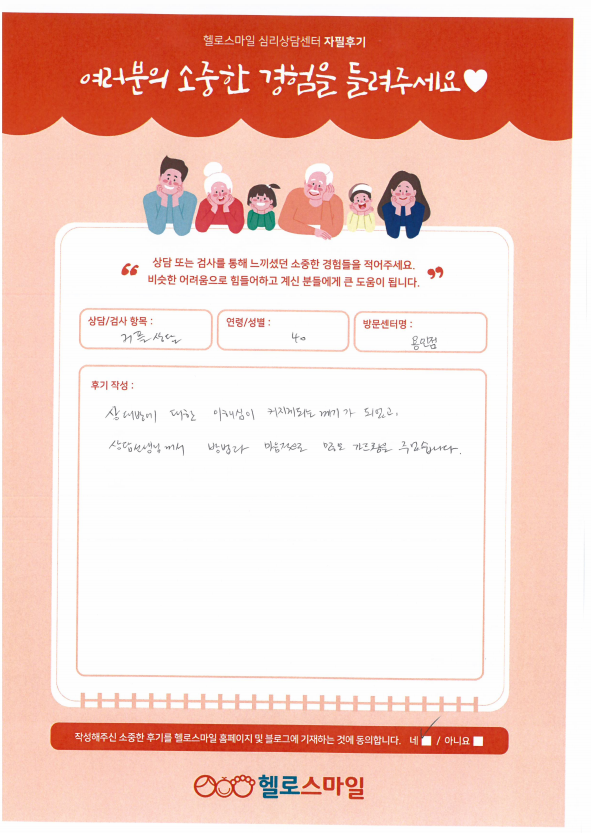 헬로스마일 심리상담센터 자필후기
여러분의 소중한 경험을 들려주세요♥
“ 상담 또는 검사를 통해 느끼셨던 소중한 경험들을 적어주세요.
비슷한 어려움으로 힘들어하고 계신 분들에게 큰 도움이 됩니다. ”
상담/검사 항목 :
커플 상담
연령/성별 :
40
방문센터명 :
용인점
후기 작성 :
상대방에 대한 이해심이 커지게되는 계기가 되었고,
상담선생님께서 방법과 마음적으로 가르침을 주셨습니다.
작성해주신 소중한 후기를 헬로스마일 홈페이지 및 블로그에 기재하는 것에 동의합니다. 네 / 아니요
헬로스마일